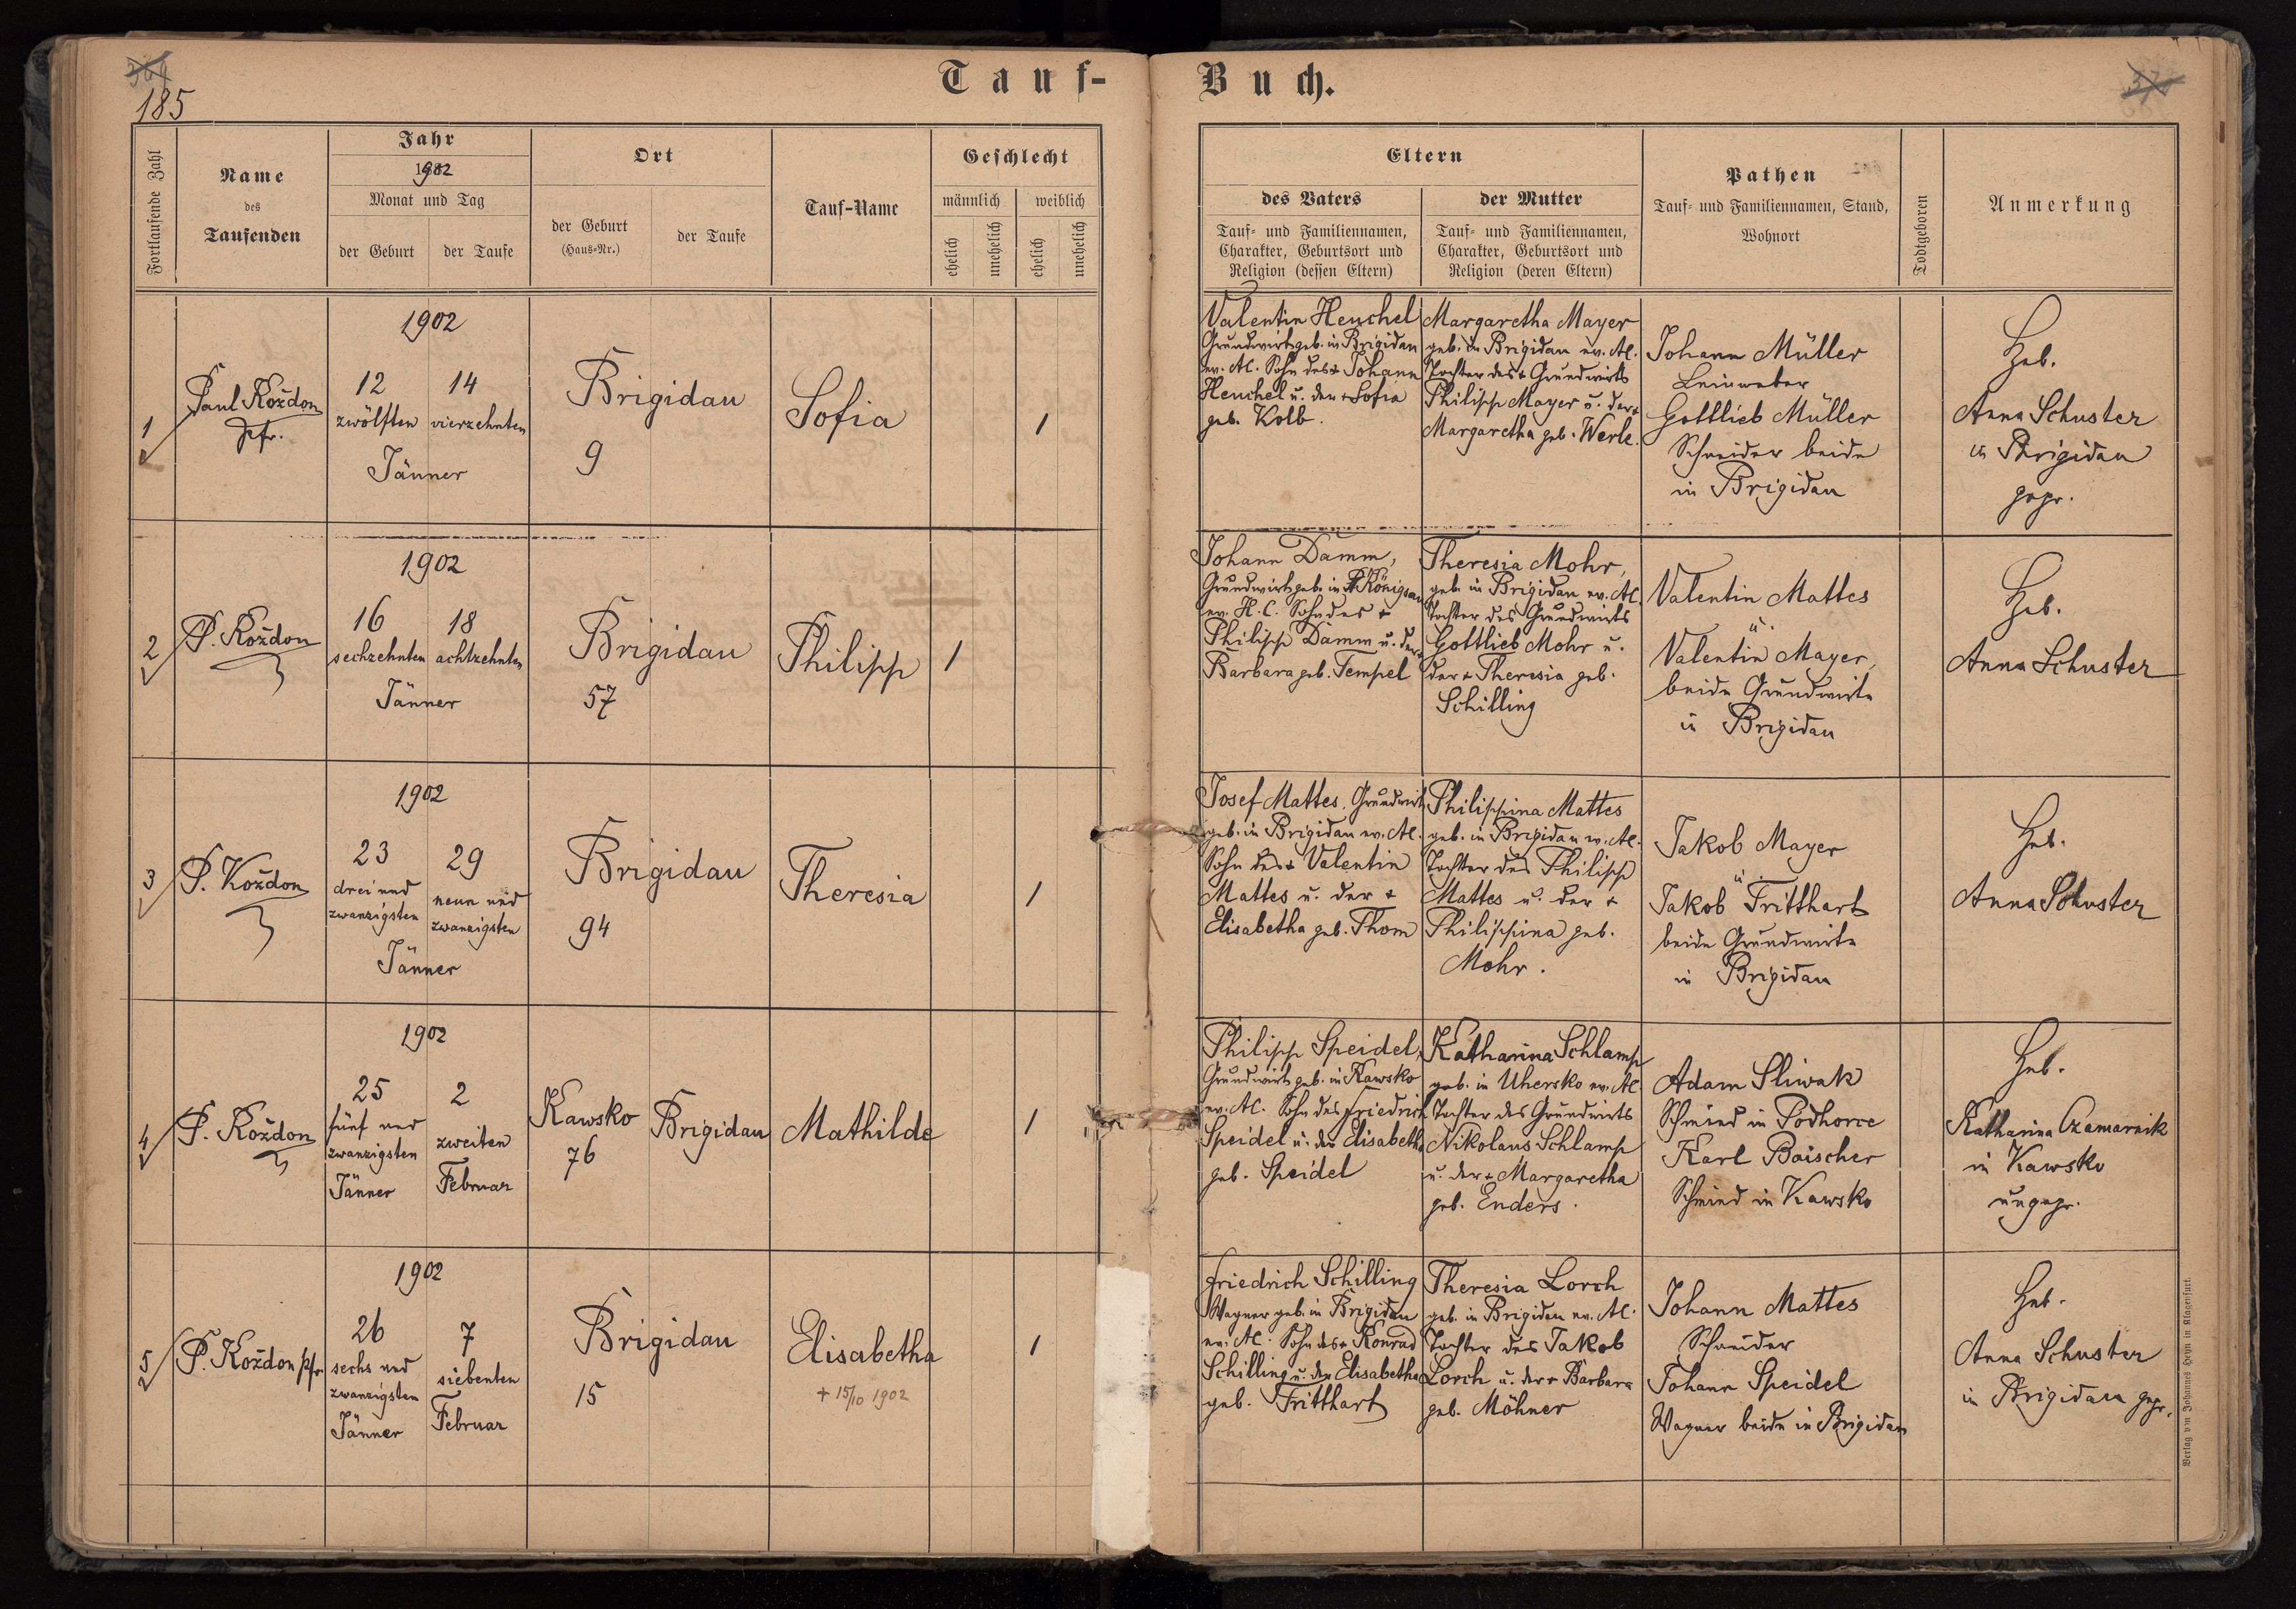 185
Tauf-
Buch.
Fortlaufende Zahl
Name
des
Taufenden
Jahr
1902
Monat und Tag
der Geburt
der Taufe
Ort
der Geburt
(Haus-Nr.)
der Taufe
Tauf-Name
Geschlecht
männlich
weiblich
ehelich
unehelich
ehelich
unehelich
Eltern
des Vaters
Tauf- und Familiennamen,
Charakter, Geburtsort und
Religion (dessen Eltern)
der Mutter
Tauf- und Familiennamen,
Charakter, Geburtsort und
Religion (deren Eltern)
Pathen
Tauf- und Familiennamen, Stand,
Wohnort
Todtgeboren
Anmerkung
1
Paul Koždon
pfr.
1902
12
zwölften
14
vierzehnten
Jänner
Brigidau
9
Sofia
1
Valentin Henchel
Grundwirt geb. in Brigidau
ev. AC. Sohn des + Johann
Henchel u. der + Sofia
geb. Kolb.
Margaretha Mayer
geb. in Brigidau ev. AC.
Tochter des + Grundwirts
Philipp Mayer u. der +
Margaretha geb. Werle.
Johann Müller
Leinweber
Gottlieb Müller
Schneider beide
in Brigidau
Heb.
Anna Schuster
in Brigidau
gepr.
2
P. Koždon
1902
16
sechzehnten
18
achtzehnten
Jänner
Brigidau
57
Philipp
1
Johann Damm,
Grundwirt geb. in Königsau
ev. H.C. Sohn des +
Philipp Damm u. der +
Barbara geb. Tempel
Theresia Mohr,
geb. in Brigidau ev. AC.
Tochter des Grundwirts
Gottlieb Mohr u.
der + Theresia geb.
Schilling
Valentin Mattes
u.
Valentin Mayer,
beide Grundwirte
in Brigidau
Heb.
Anna Schuster
3
P. Koždon
1902
23
drei und
zwanzigsten
29
neun und
zwanzigsten
Jänner
Brigidau
94
Theresia
1
Josef Mattes, Grundwirt
geb. in Brigidau ev. AC.
Sohn des + Valentin
Mattes u. der +
Elisabetha geb. Thom
Philippina Mattes
geb. in Brigidau ev. AC.
Tochter des Philipp
Mattes u. der +
Philippina geb.
Mohr.
Jakob Mayer
u.
Jakob Fritthart
beide Grundwirte
in Brigidau
Heb.
Anna Schuster
4
P. Koždon
1902
25
fünf und
zwanzigsten
Jänner
2
zweiten
Februar
Kawsko
76
Brigidau
Mathilde
1
Philipp Speidel,
Grundwirt geb. in Kawsko
ev. AC. Sohn des Friedrich
Speidel u. der Elisabetha
geb. Speidel
Katharina Schlamp
geb. in Uhersko ev. AC.
Tochter des Grundwirts
Nikolaus Schlamp
u. der + Margaretha
geb. Enders.
Adam Sliwak
Schmied in Podhorce
Karl Baischer
Schmied in Kawsko
Heb.
Katharina Czamarnik
in Kawsko
ungepr.
5
P. Koždon pfr.
1902
26
sechs und
zwanzigsten
Jänner
7
siebenten
Februar
Brigidau
15
Elisabetha
+ 15/10 1902
1
Friedrich Schilling
Wagner geb. in Brigidau
ev. AC. Sohn des + Konrad
Schilling u. der Elisabetha
geb. Fritthart
Theresia Lorch
geb. in Brigidau ev. AC.
Tochter des Jakob
Lorch u. der + Barbara
geb. Möhner
Johann Mattes
Schneider
Johann Speidel
Wagner beide in Brigidau
Heb.
Anna Schuster
in Brigidau gepr.
Verlag von Johannes Heyn in Klagenfurt.